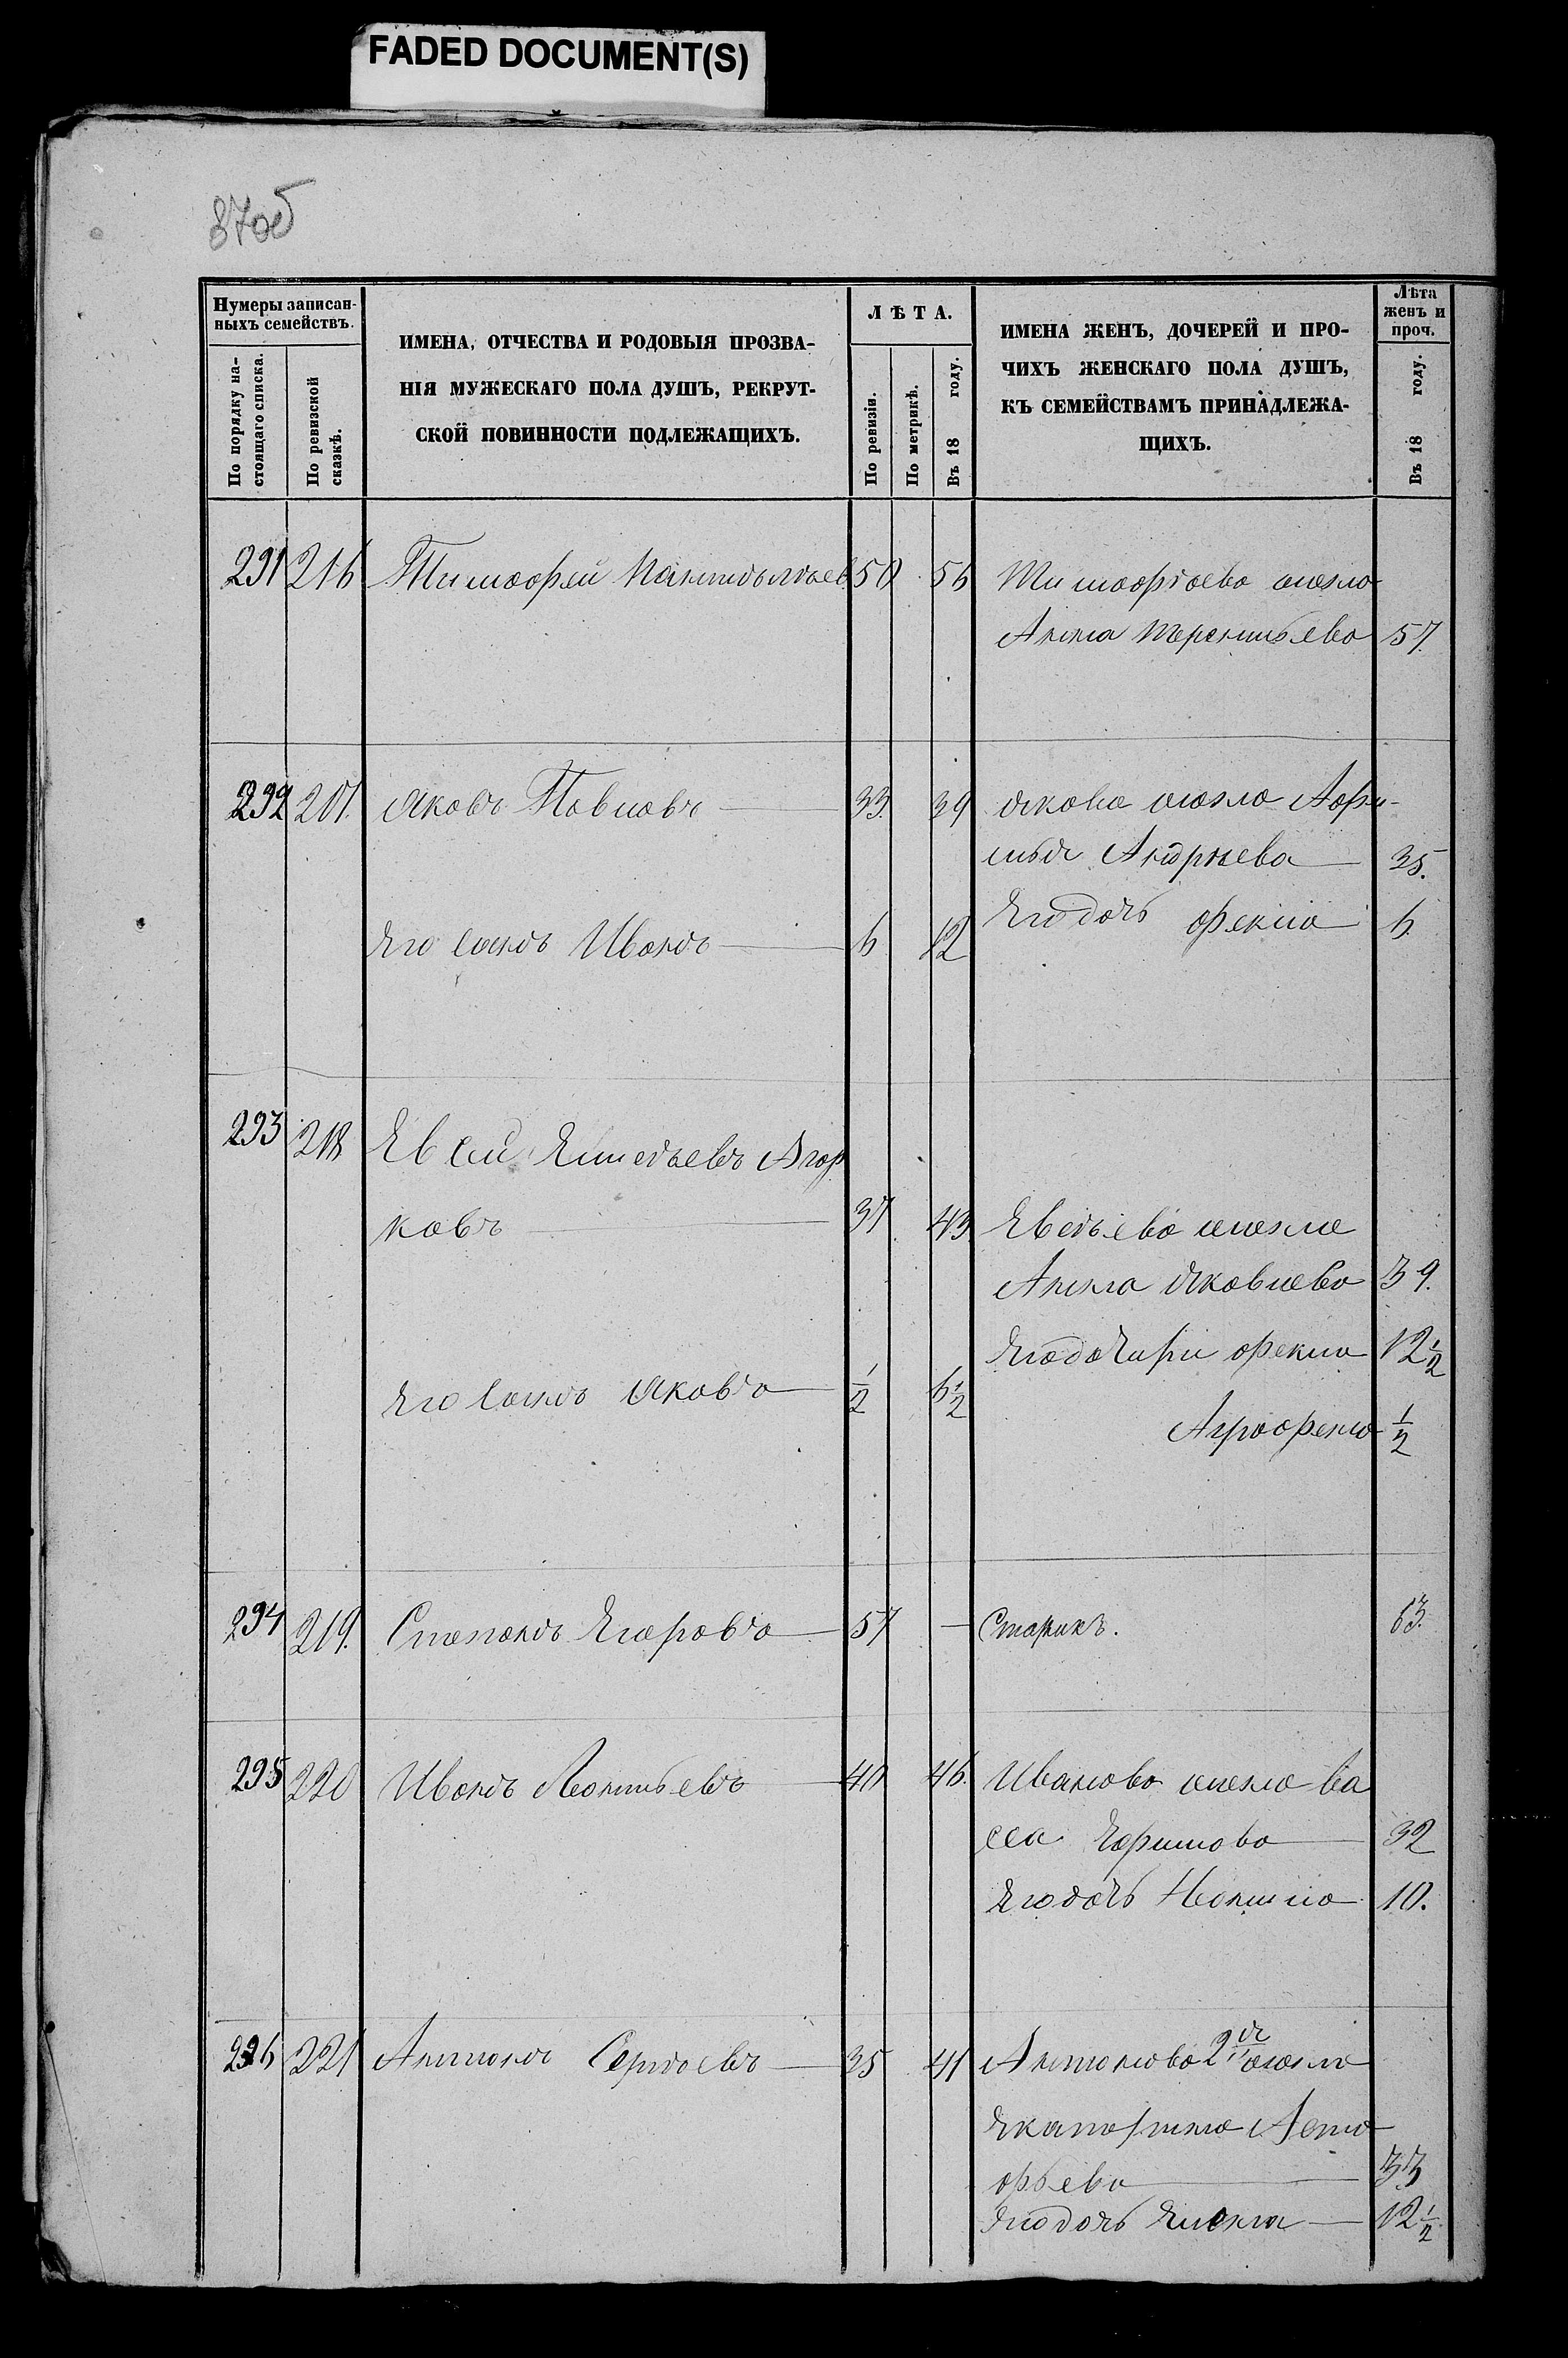 FADED DOCUMENT(S)
87об
Нумеры записан-
ныхъ семействъ.
По порядку на-
стоящаго списка.
По ревизской
сказкѣ.
ИМЕНА, ОТЧЕСТВА И РОДОВЫЯ ПРОЗВА-
НІЯ МУЖЕСКАГО ПОЛА ДУШЪ, РЕКРУТ-
СКОЙ ПОВИННОСТИ ПОДЛЕЖАЩИХЪ.
ЛѢТА.
По ревизіи.
По метрикѣ.
Въ 18 году.
ИМЕНА ЖЕНЪ, ДОЧЕРЕЙ И ПРО-
ЧИХЪ ЖЕНСКАГО ПОЛА ДУШЪ,
КЪ СЕМЕЙСТВАМЪ ПРИНАДЛЕЖА-
ЩИХЪ.
Лѣта
женъ и
проч.
Въ 18 году.
291 216 Тимофей 50 56 Тимофѣева жена
Анна Терентьева 57.
292 217. Яковъ Павловъ 33. 39 Якова жена Афи-
мья Андрѣева 35.
Его сынъ Иванъ 6 12 Его дочь Фекла 6.
293 218 Евсей Елисѣевъ Агар
ковъ 37 43 Евсѣева жена
Анна Яковлева 39.
Его дочери Фекла 12 1/2
Его сынъ Яковъ 1/2 6 1/2
Аграфена 1/2
294 219. Степанъ Егоровъ 57 — Старикъ. 63.
295 220 Иванъ Леонтьевъ 40 46. Иванова жена Ва
сса Ефимова 32
Его дочь Ненила 10.
296 221 Антонъ Сергѣевъ 35 41 Антонова 2я жена
Екатерина Аста
фьева 33
Его дочь Елена 12 1/2